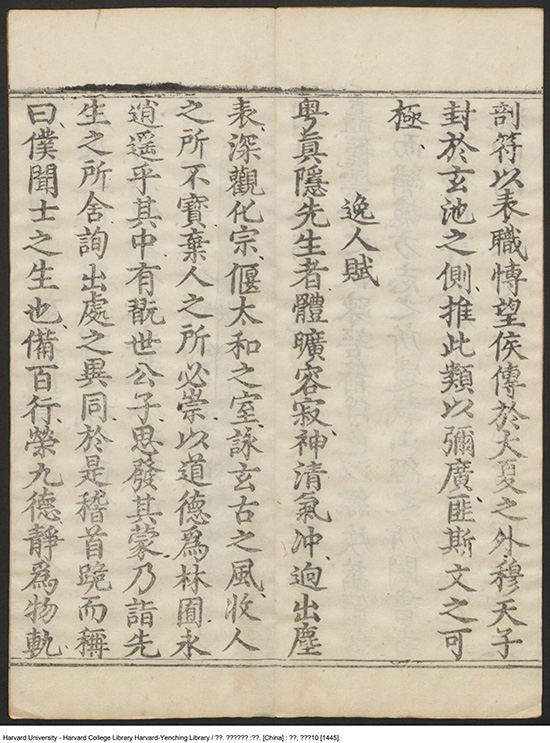 剖符以表職博望侯傳於大夏之外穆天子
封於玄池之側推此類以彌廣匪斯文之可
極
逸人賦
粵真隱先生者體曠容寂神清氣冲迥出塵
表深觀化宗偃太和之室詠玄古之風收人
之所不寶棄人之所必崇以道德爲林囿永
逍遥乎其中有翫世公子思發其蒙乃詣先
生之所舍詢出處之異同於是稽首跪而稱
曰僕聞士之生也備百行榮九德靜爲物軌
Harvard University - Harvard College Library Harvard-Yenching Library / ??. ?????? :??. [China] : ??, ???10 [1445].